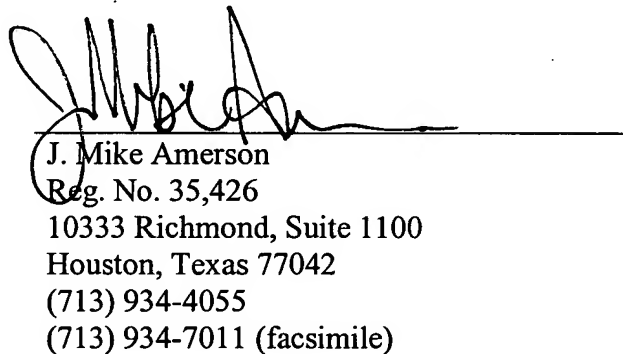 J. Mike Amerson
J. Mike Amerson
Reg. No. 35,426
10333 Richmond, Suite 1100
Houston, Texas 77042
(713) 934-4055
(713) 934-7011 (facsimile)